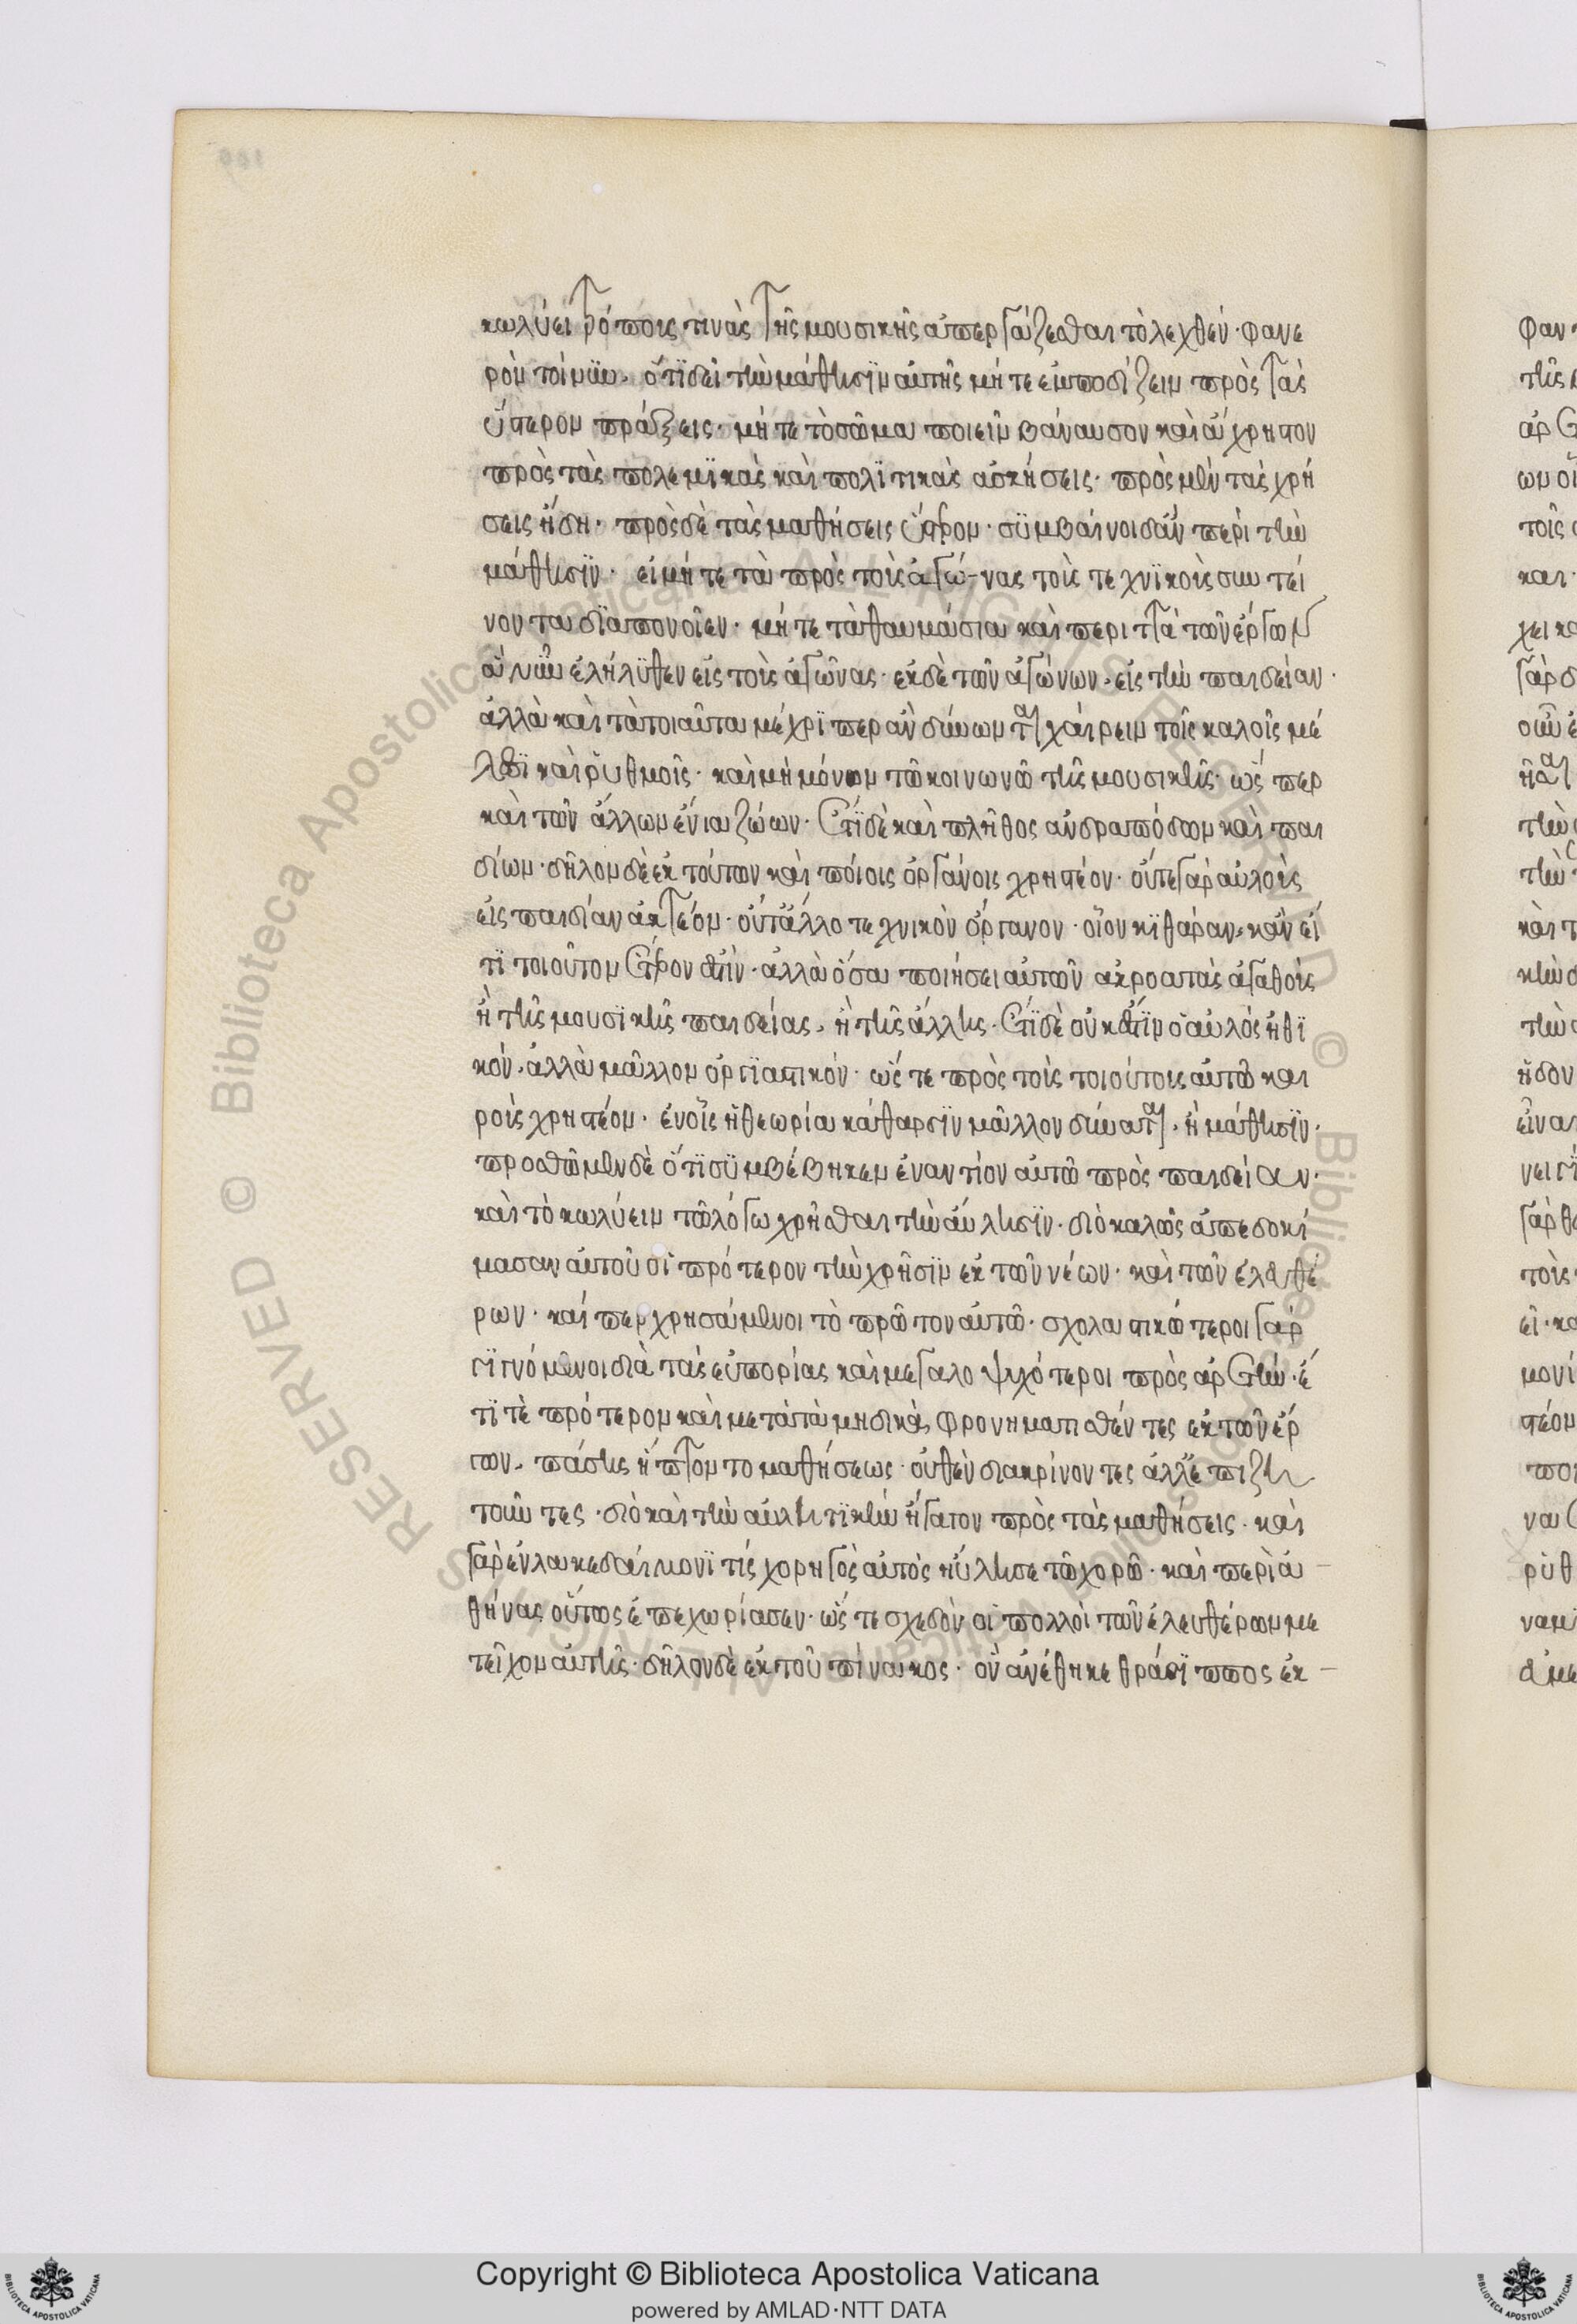 κωλύει τρόπους τινὰς τῆς μουσικῆς ἀπεργάζεσθαι τὸ λεχθέν· φανε
ρὸν τοίνυν, ὅτι δεῖ τὴν μάθησιν αὐτῆς μήτε ἐμποδίζειν πρὸς τὰς
ὕστερον πράξεις· μήτε τὸ σῶμα ποιεῖν βάναυσον καὶ ἄχρηστον
πρὸς τὰς πολεμϊκὰς καὶ πολϊτικὰς ἀσκήσεις· πρὸς μὲν τὰς χρή
σεις ἤδη· πρὸς δὲ τὰς μαθήσεις ὕστερον· συμβαίνοι δἂν περὶ τὴν
μάθησϊν· εἰ μήτε τὰ πρὸς τοὺς ἀγῶ-νας τοὺς τεχνϊκοὺς συντεί
νοντα διαπονοῖεν· μήτε τὰ θαυμάσια καὶ περιττὰ τῶν ἔργων
ἃ νῦν ἐλήλϋθεν εἰς τοὺς ἀγῶνας· ἐκ δὲ τῶν ἀγώνων, εἰς τὴν παιδείαν·
ἀλλὰ καὶ τὰ τοιαῦτα μέχρϊ περ ἂν δύνωνται χαίρειν τοῖς καλοῖς μέ
λεσϊ καὶ ῥυθμοῖς· καὶ μὴ μόνον τῶ κοινωνῶ τῆς μουσικῆς· ὥσπερ
καὶ τῶν ἄλλων ἔνια ζώων· ἔτϊ δὲ καὶ πλῆθος ἀνδραπόδων καὶ παι
δίων· δῆλον δὲ ἐκ τούτων καὶ ποίοις ὀργάνοις χρηστέον· οὔτε γὰρ αὐλοὺς
εἰς παιδίαν ἀκτέον· οὔτ ἄλλο τεχνικὸν ὄργανον· οἷον κϊθάραν, κἂν εἴ
τϊ τοιοῦτον ἕτερον ἐστὶν· ἀλλὰ ὅσα ποιήσει αὐτῶν ἀκροατὰς ἀγαθοὺς
ἢ τῆς μουσϊκῆς παιδείας, ἢ τῆς ἄλλης· ἔτϊ δὲ οὐκ ἔστϊν ὁ αὐλὸς ἠθϊ
κόν, ἀλλὰ μᾶλλον ὀργϊαστικόν· ὥστε πρὸς τοὺς τοιούτους αὐτῶ και
ροὺς χρηστέον· ἐν οἷς ἡ θεωρία κάθαρσϊν μᾶλλον δύναται, ἢ μάθησϊν·
προσθῶμεν δὲ ὅτϊ συμβέβηκεν ἐναντίον αὐτῶ πρὸς παιδείαν·
καὶ τὸ κωλύειν τῶ λόγω χρῆσθαι τὴν αὔλησϊν· διὸ καλῶς ἀπεδοκί
μασαν αὐτοῦ οἱ πρότερον τὴν χρῆσϊν ἐκ τῶν νέων· καὶ τῶν ἐλευθέ
ρων· καί περ χρησάμενοι τὸ πρῶτον αὐτῶ· σχολαστικώτεροι γὰρ
γϊγνόμενοι διὰ τὰς εὐπορίας καὶ μεγαλοψυχότεροι πρὸς ἀρετήν· ἔ
τϊ τὲ πρότερον καὶ μετὰ τὰ μηδικὰ, φρονηματισθέντες ἐκ τῶν ἔρ
γων, πάσης ἥπτοντο μαθήσεως· οὐθὲν διακρίνοντες ἀλλ' ἐπιζη
τοῦντες· διὸ καὶ τὴν αὐλητϊκὴν ἤγαγον πρὸς τὰς μαθήσεις· καὶ
γὰρ ἐν λακεδαίμονϊ τίς χορηγὸς αὐτὸς ηὔλησε τῶ χορῶ· καὶ περὶ ἀ-
θήνας οὕτως ἐπεχωρίασεν· ὥστε σχεδὸν οἱ πολλοὶ τῶν ἐλευθέρων με
τεῖχον αὐτῆς· δῆλον δὲ ἐκ τοῦ πίνακος· ὃν ἀνέθηκε θράσϊππος ἐκ-
Copyright © Biblioteca Apostolica Vaticana
powered by AMLAD·NTT DATA